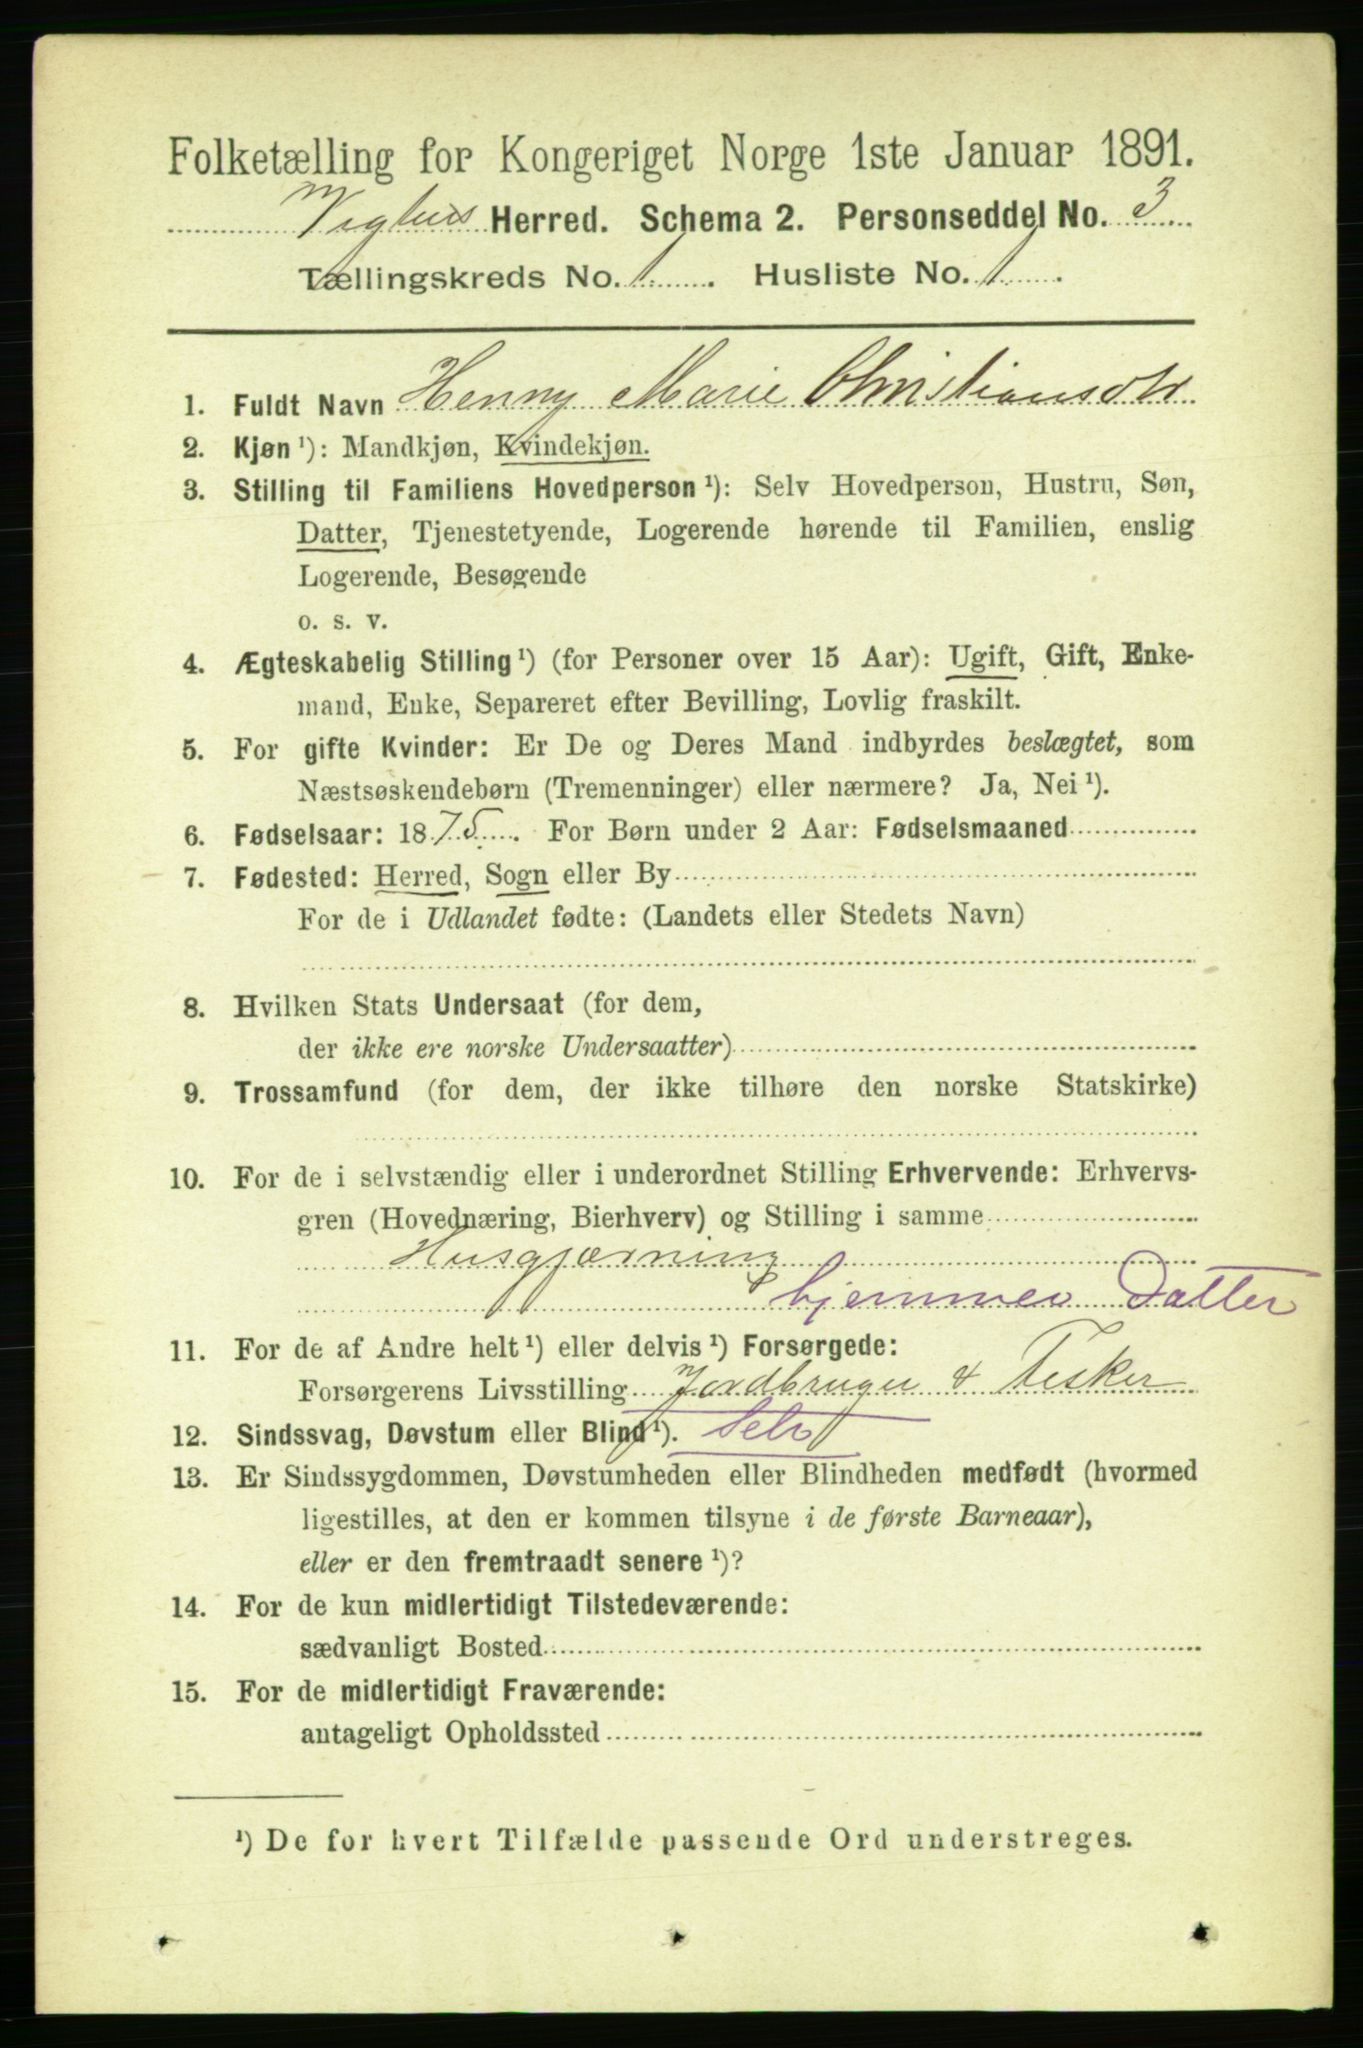 Folketælling for Kongeriget Norge 1ste Januar 1891.
Herred. Schema 2. Personseddel No. 3
Tællingskreds No. 1. Husliste No. 1.
1. Fuldt Navn Henny Marie Christiansdtr
2. Kjøn¹): Mandkjøn, Kvindekjøn.
3. Stilling til Familiens Hovedperson¹): Selv Hovedperson, Hustru, Søn,
Datter, Tjenestetyende, Logerende hørende til Familien, enslig
Logerende, Besøgende
o. s. v.
4. Ægteskabelig Stilling¹) (for Personer over 15 Aar): Ugift, Gift, Enke-
mand, Enke, Separeret efter Bevilling, Lovlig fraskilt.
5. For gifte Kvinder: Er De og Deres Mand indbyrdes beslægtet, som
Næstsøskendebørn (Tremenninger) eller nærmere? Ja, Nei¹).
6. Fødselsaar: 1875. For Børn under 2 Aar: Fødselsmaaned
7. Fødested: Herred, Sogn eller By
For de i Udlandet fødte: (Landets eller Stedets Navn)
8. Hvilken Stats Undersaat (for dem,
der ikke ere norske Undersaatter)
9. Trossamfund (for dem, der ikke tilhøre den norske Statskirke)
10. For de i selvstændig eller i underordnet Stilling Erhvervende: Erhvervs-
gren (Hovednæring, Bierhverv) og Stilling i samme
Husgjærning
hjemmev Datter
11. For de af Andre helt¹) eller delvis¹) Forsørgede:
Forsørgerens Livsstilling Jordbruger & Fisker
12. Sindssvag, Døvstum eller Blind¹). Selv
13. Er Sindssygdommen, Døvstumheden eller Blindheden medfødt (hvormed
ligestilles, at den er kommen tilsyne i de første Barneaar),
eller er den fremtraadt senere¹)?
14. For de kun midlertidigt Tilstedeværende:
sædvanligt Bosted
15. For de midlertidigt Fraværende:
antageligt Opholdssted
¹) De for hvert Tilfælde passende Ord understreges.